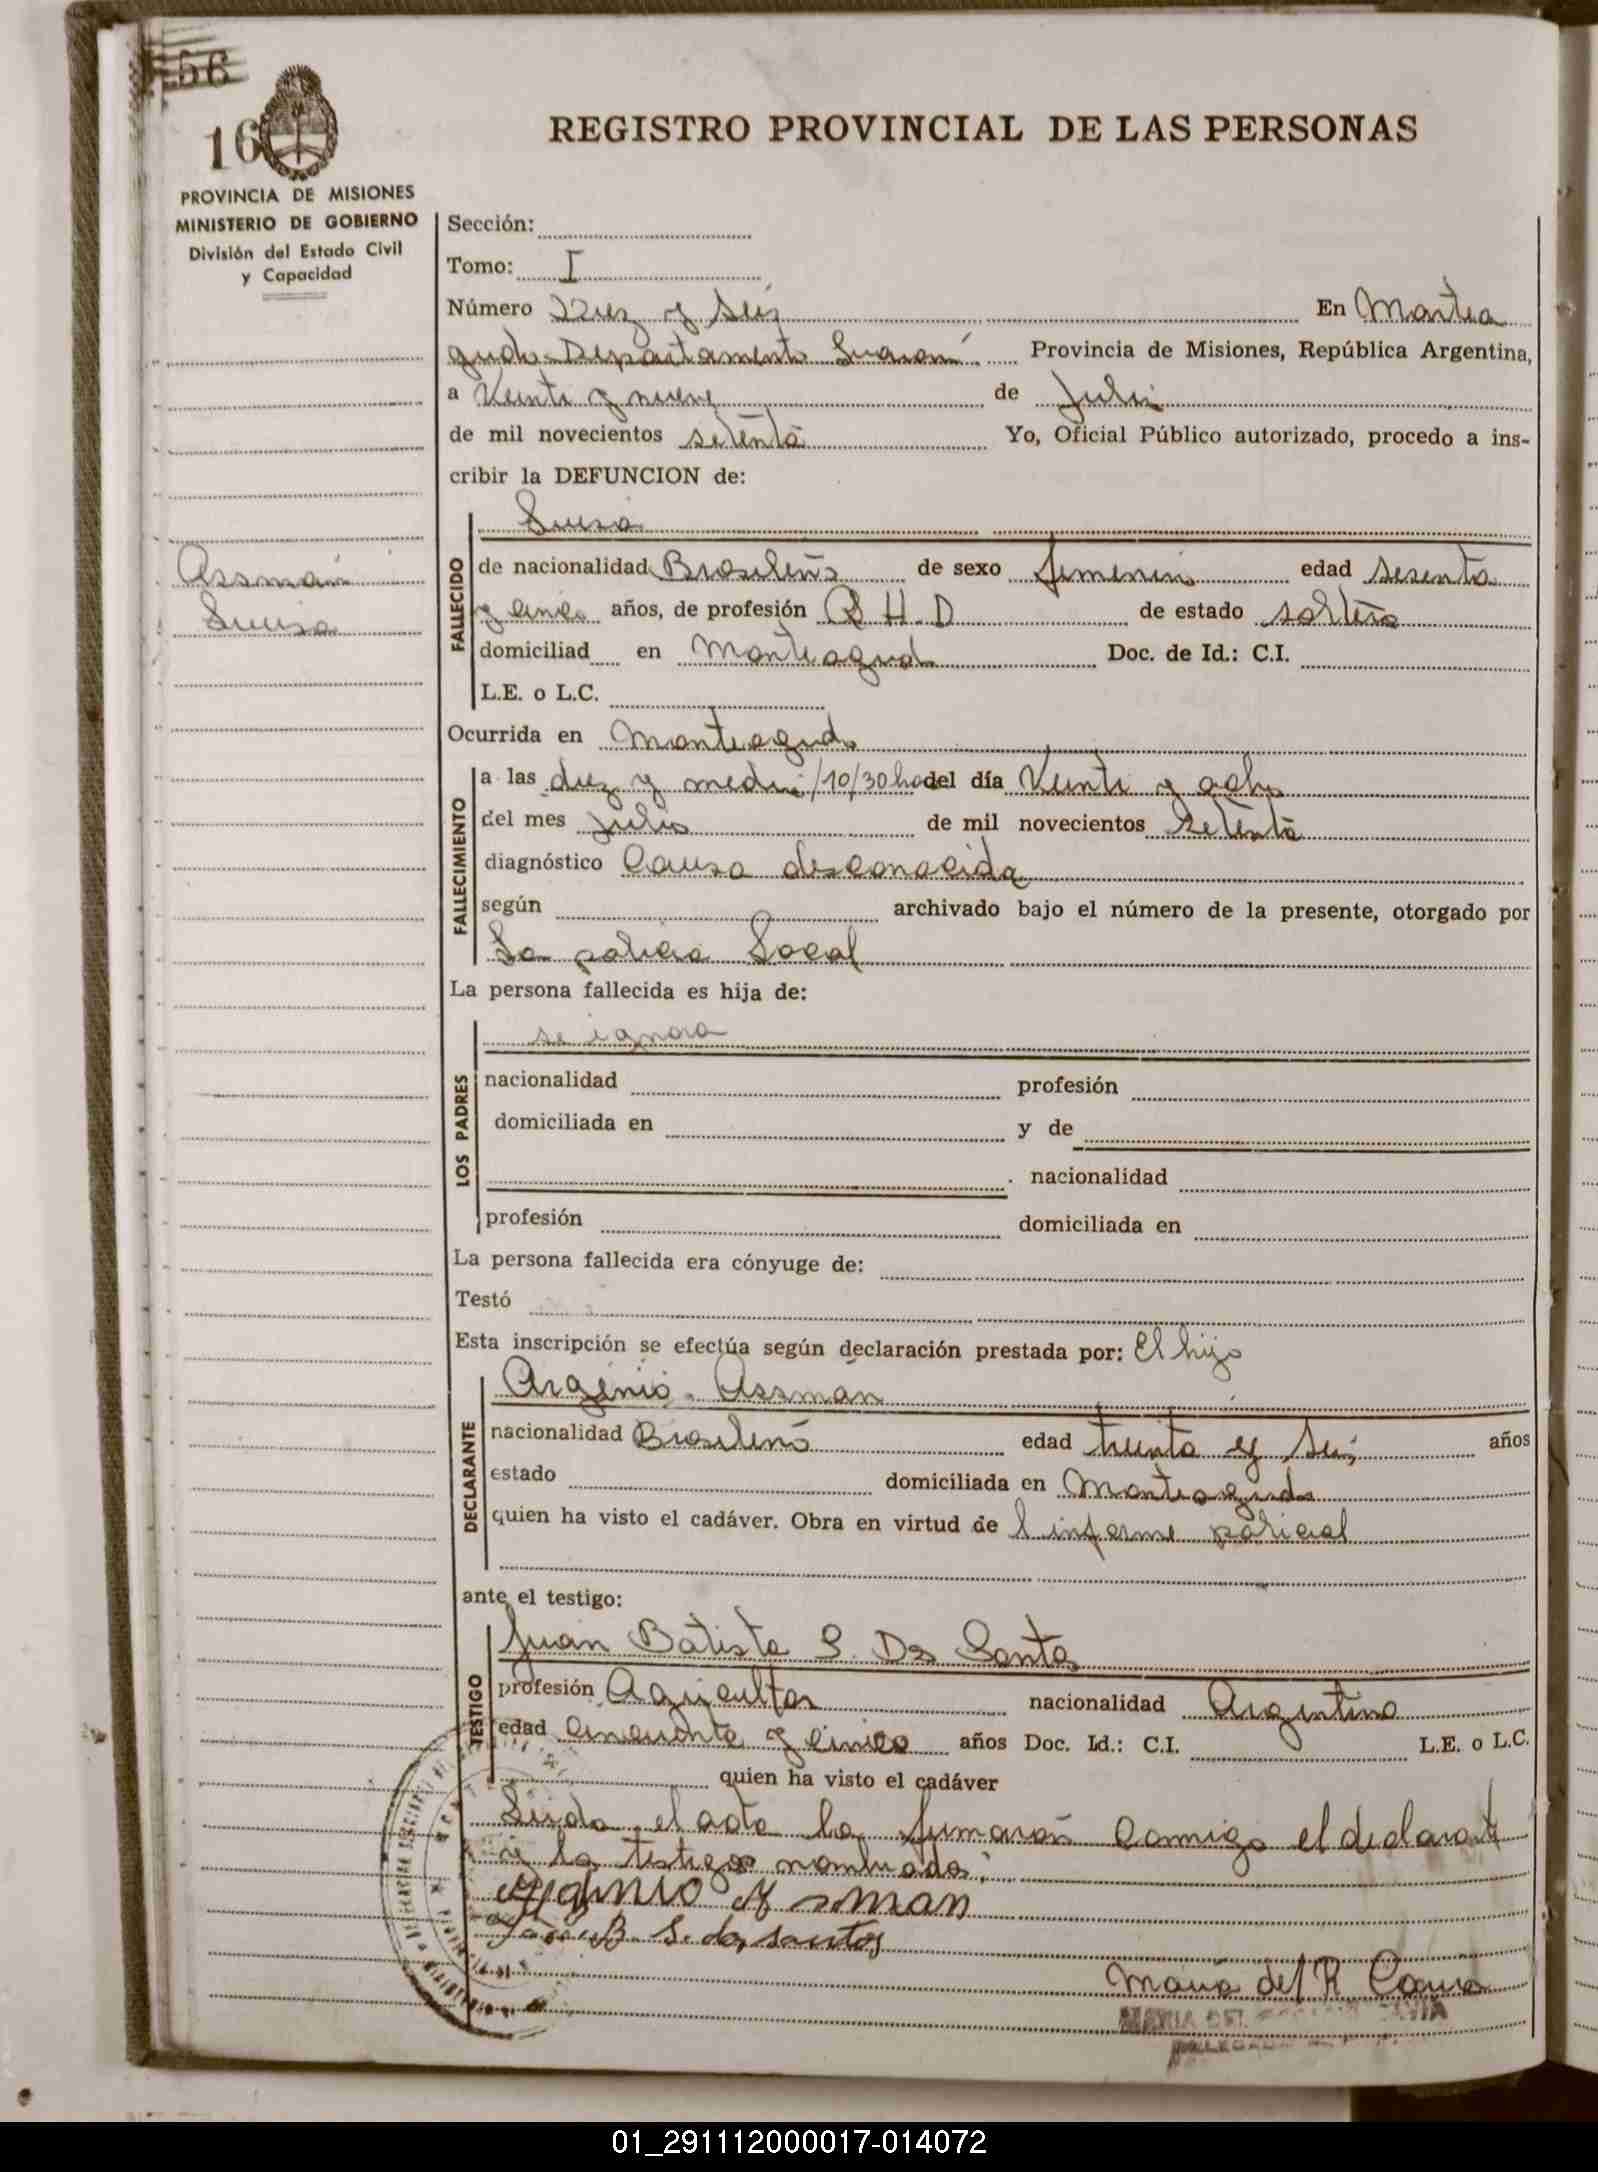 56
16
REGISTRO PROVINCIAL DE LAS PERSONAS
PROVINCIA DE MISIONES
MINISTERIO DE GOBIERNO
División del Estado Civil
y Capacidad
Sección:
Tomo: I
Número Diez y Seis En Montea
gudo Departamento Guaraní Provincia de Misiones, República Argentina,
a Veinte y nueve de Julio
de mil novecientos setenta Yo, Oficial Público autorizado, procedo a ins-
cribir la DEFUNCION de:
Assman
Luisa
FALLECIDO
Luisa
de nacionalidad Brasileña de sexo femenino edad sesenta
y cinco años, de profesión Q H. D de estado soltera
domiciliad en Monteagudo Doc. de Id.: C.I.
L.E. o L.C.
Ocurrida en Monteagudo
FALLECIMIENTO
a las diez y media /10/30 ho del día Veinte y ocho
del mes Julio de mil novecientos setenta
diagnóstico Causa desconocida
según archivado bajo el número de la presente, otorgado por
La policia Local
La persona fallecida es hija de:
LOS PADRES
se ignora
nacionalidad profesión
domiciliada en y de
nacionalidad
profesión domiciliada en
La persona fallecida era cónyuge de:
Testó
Esta inscripción se efectúa según declaración prestada por: El hijo
DECLARANTE
Argenio Assman
nacionalidad Brasileño edad treinta y Seis años
estado domiciliada en Monteagudo
quien ha visto el cadáver. Obra en virtud de l informe policial
ante el testigo:
TESTIGO
Juan Batista S. Dos Santos
profesión Agricultor nacionalidad Argentino
edad cincuenta y cinco años Doc. Id.: C.I. L.E. o L.C.
quien ha visto el cadáver
Leida el acta la firmaran Conmigo el declarante
i los testigos nombrados;
Argenio Assman
B. S. dos santos
Maria del R
MARIA DEL
01_291112000017-014072